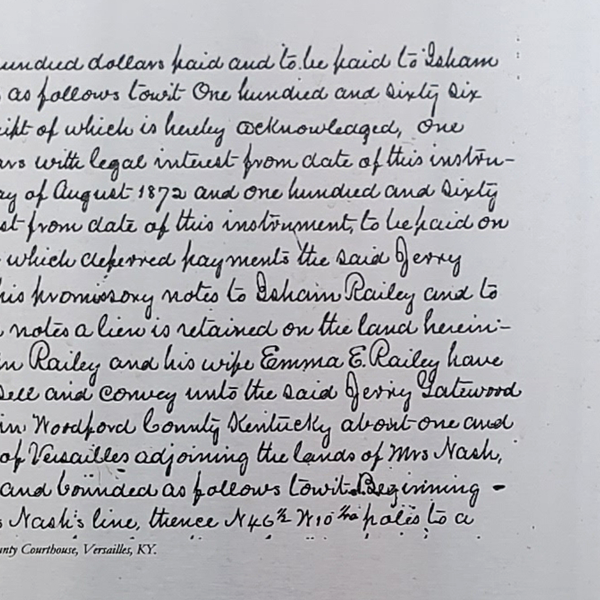 undred dollars paid and to be paid to Isham
as follows towit One hundred and sixty six
eipt of which is hereby acknowledged, One
ars with legal interest from date of this instru-
ay of August 1872 and one hundred and sixty
st from date of this instrument, to be paid on
which deferred payments the said Jerry
his promissory notes to Isham Railey and to
notes a lien is retained on the land herein-
m Railey and his wife Emma E. Railey have
sell and convey unto the said Jerry Gatewood
in Woodford County Kentucky about one and
of Versailles adjoining the lands of Mrs Nash,
and bounded as follows towit. Beginning -
s Nash's line, thence N46½ W10 poles to a
unty Courthouse, Versailles, KY.